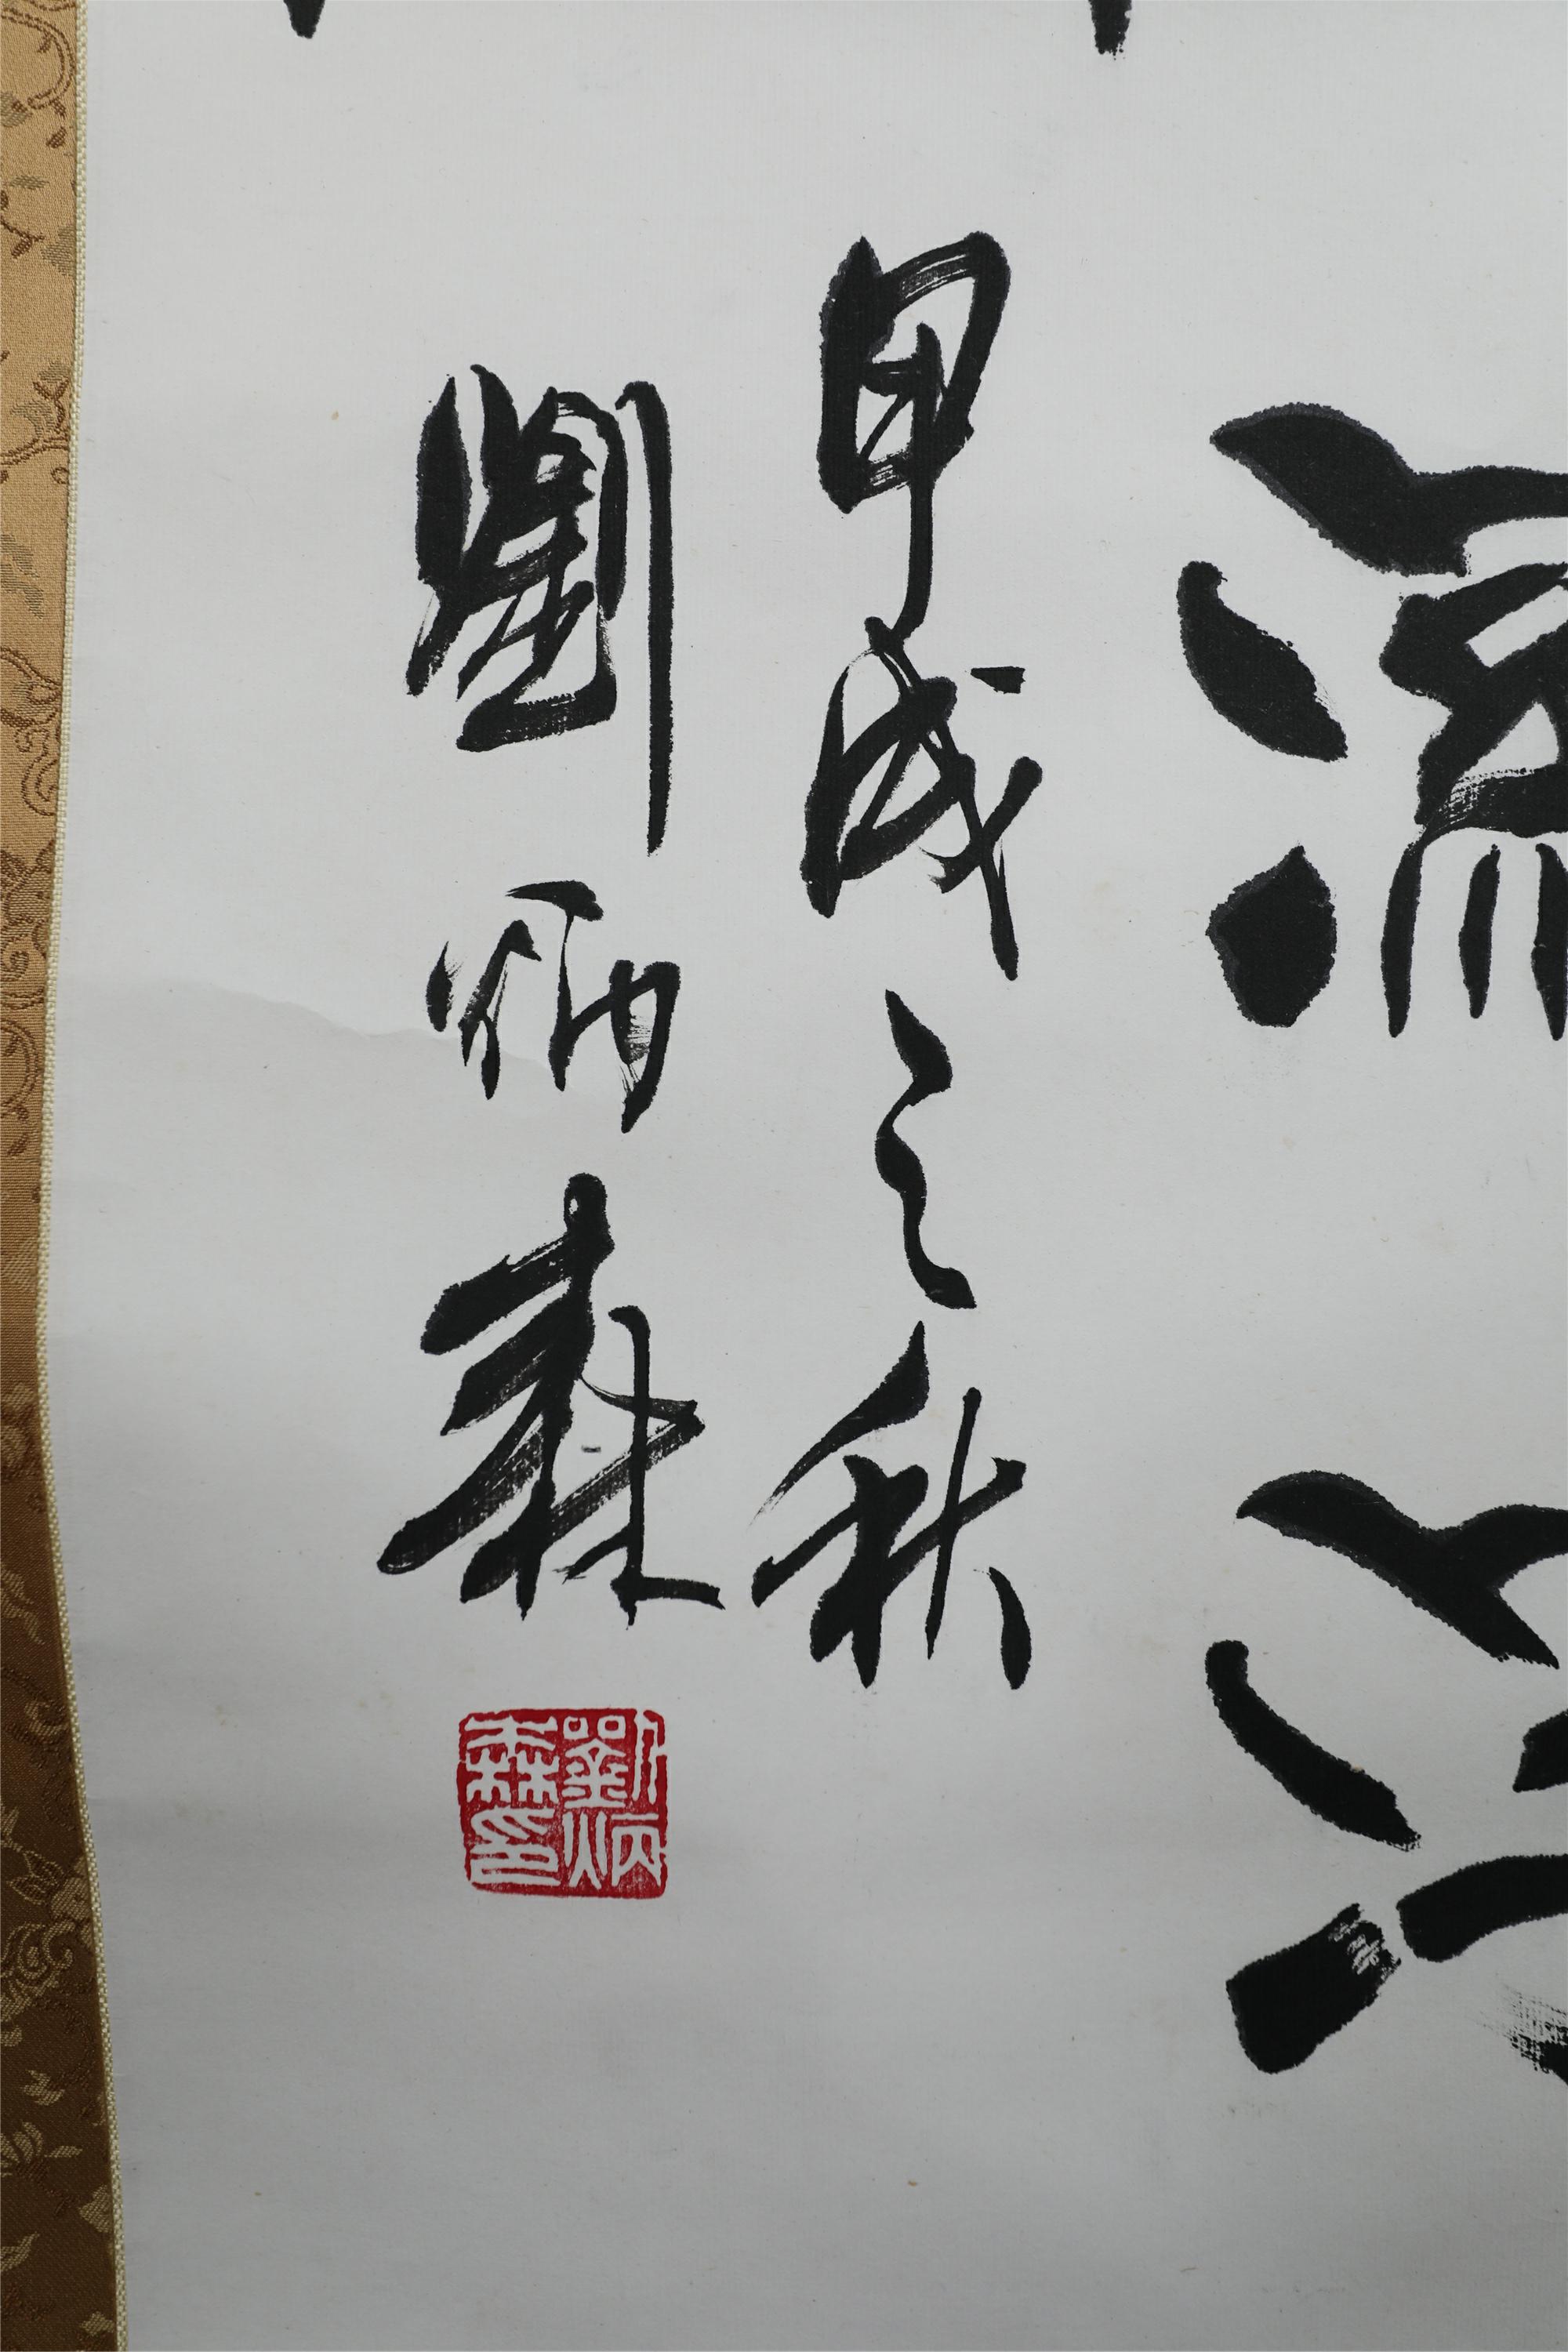 流
甲戌之秋
劉炳森
劉炳森印